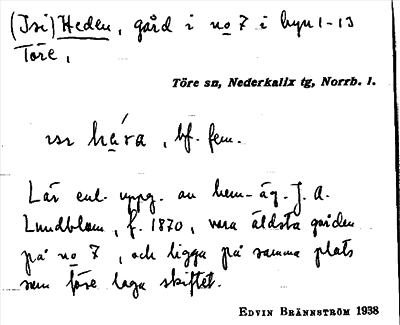 (Isi) Heden, gård i no 7 i byn 1-13
Töre,
Töre sn, Nederkalix tg, Norrb. l.
hǻra, bf. fem.
Lär enl. uppg. av hem.-äg. J. A.
Lundblom, f. 1870, vara äldsta gården
på no 7, och ligga på samma plats
som före laga skiftet.
EDVIN BRÄNNSTRÖM 1938